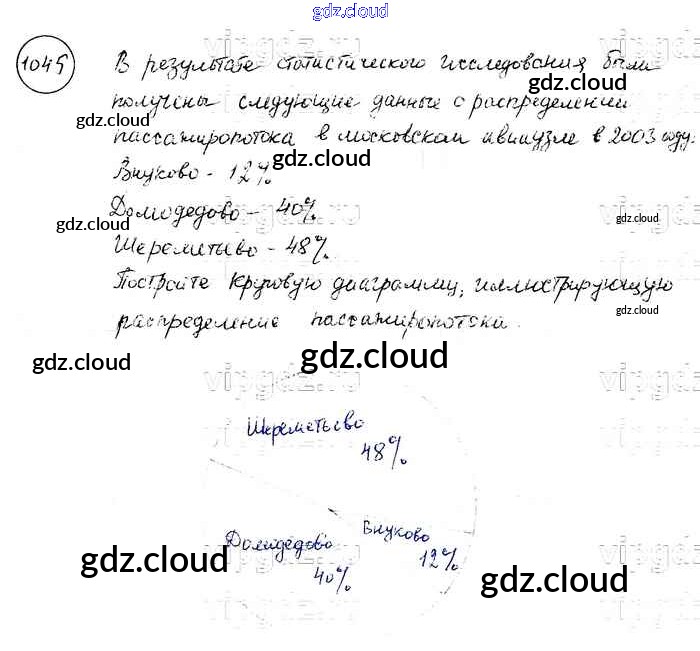 gdz.cloud
1045 В результате статистического исследования были
gdz.cloud
получены следующие данные о распределении
gdz.cloud
пассажиропотока в московском авиаузле в 2003 году:
gdz.cloud
Внуково - 12%
Домодедово - 40%
gdz.cloud
gdz.cloud
Шереметьево - 48%.
Постройте круговую диаграмму, иллюстрирующую
gdz.cloud
распределение пассажиропотока.
gdz.cloud
gdz.cloud
gdz.cloud
Шереметьево
48%
Внуково
12%
Домодедово
40%
gdz.cloud
gdz.cloud